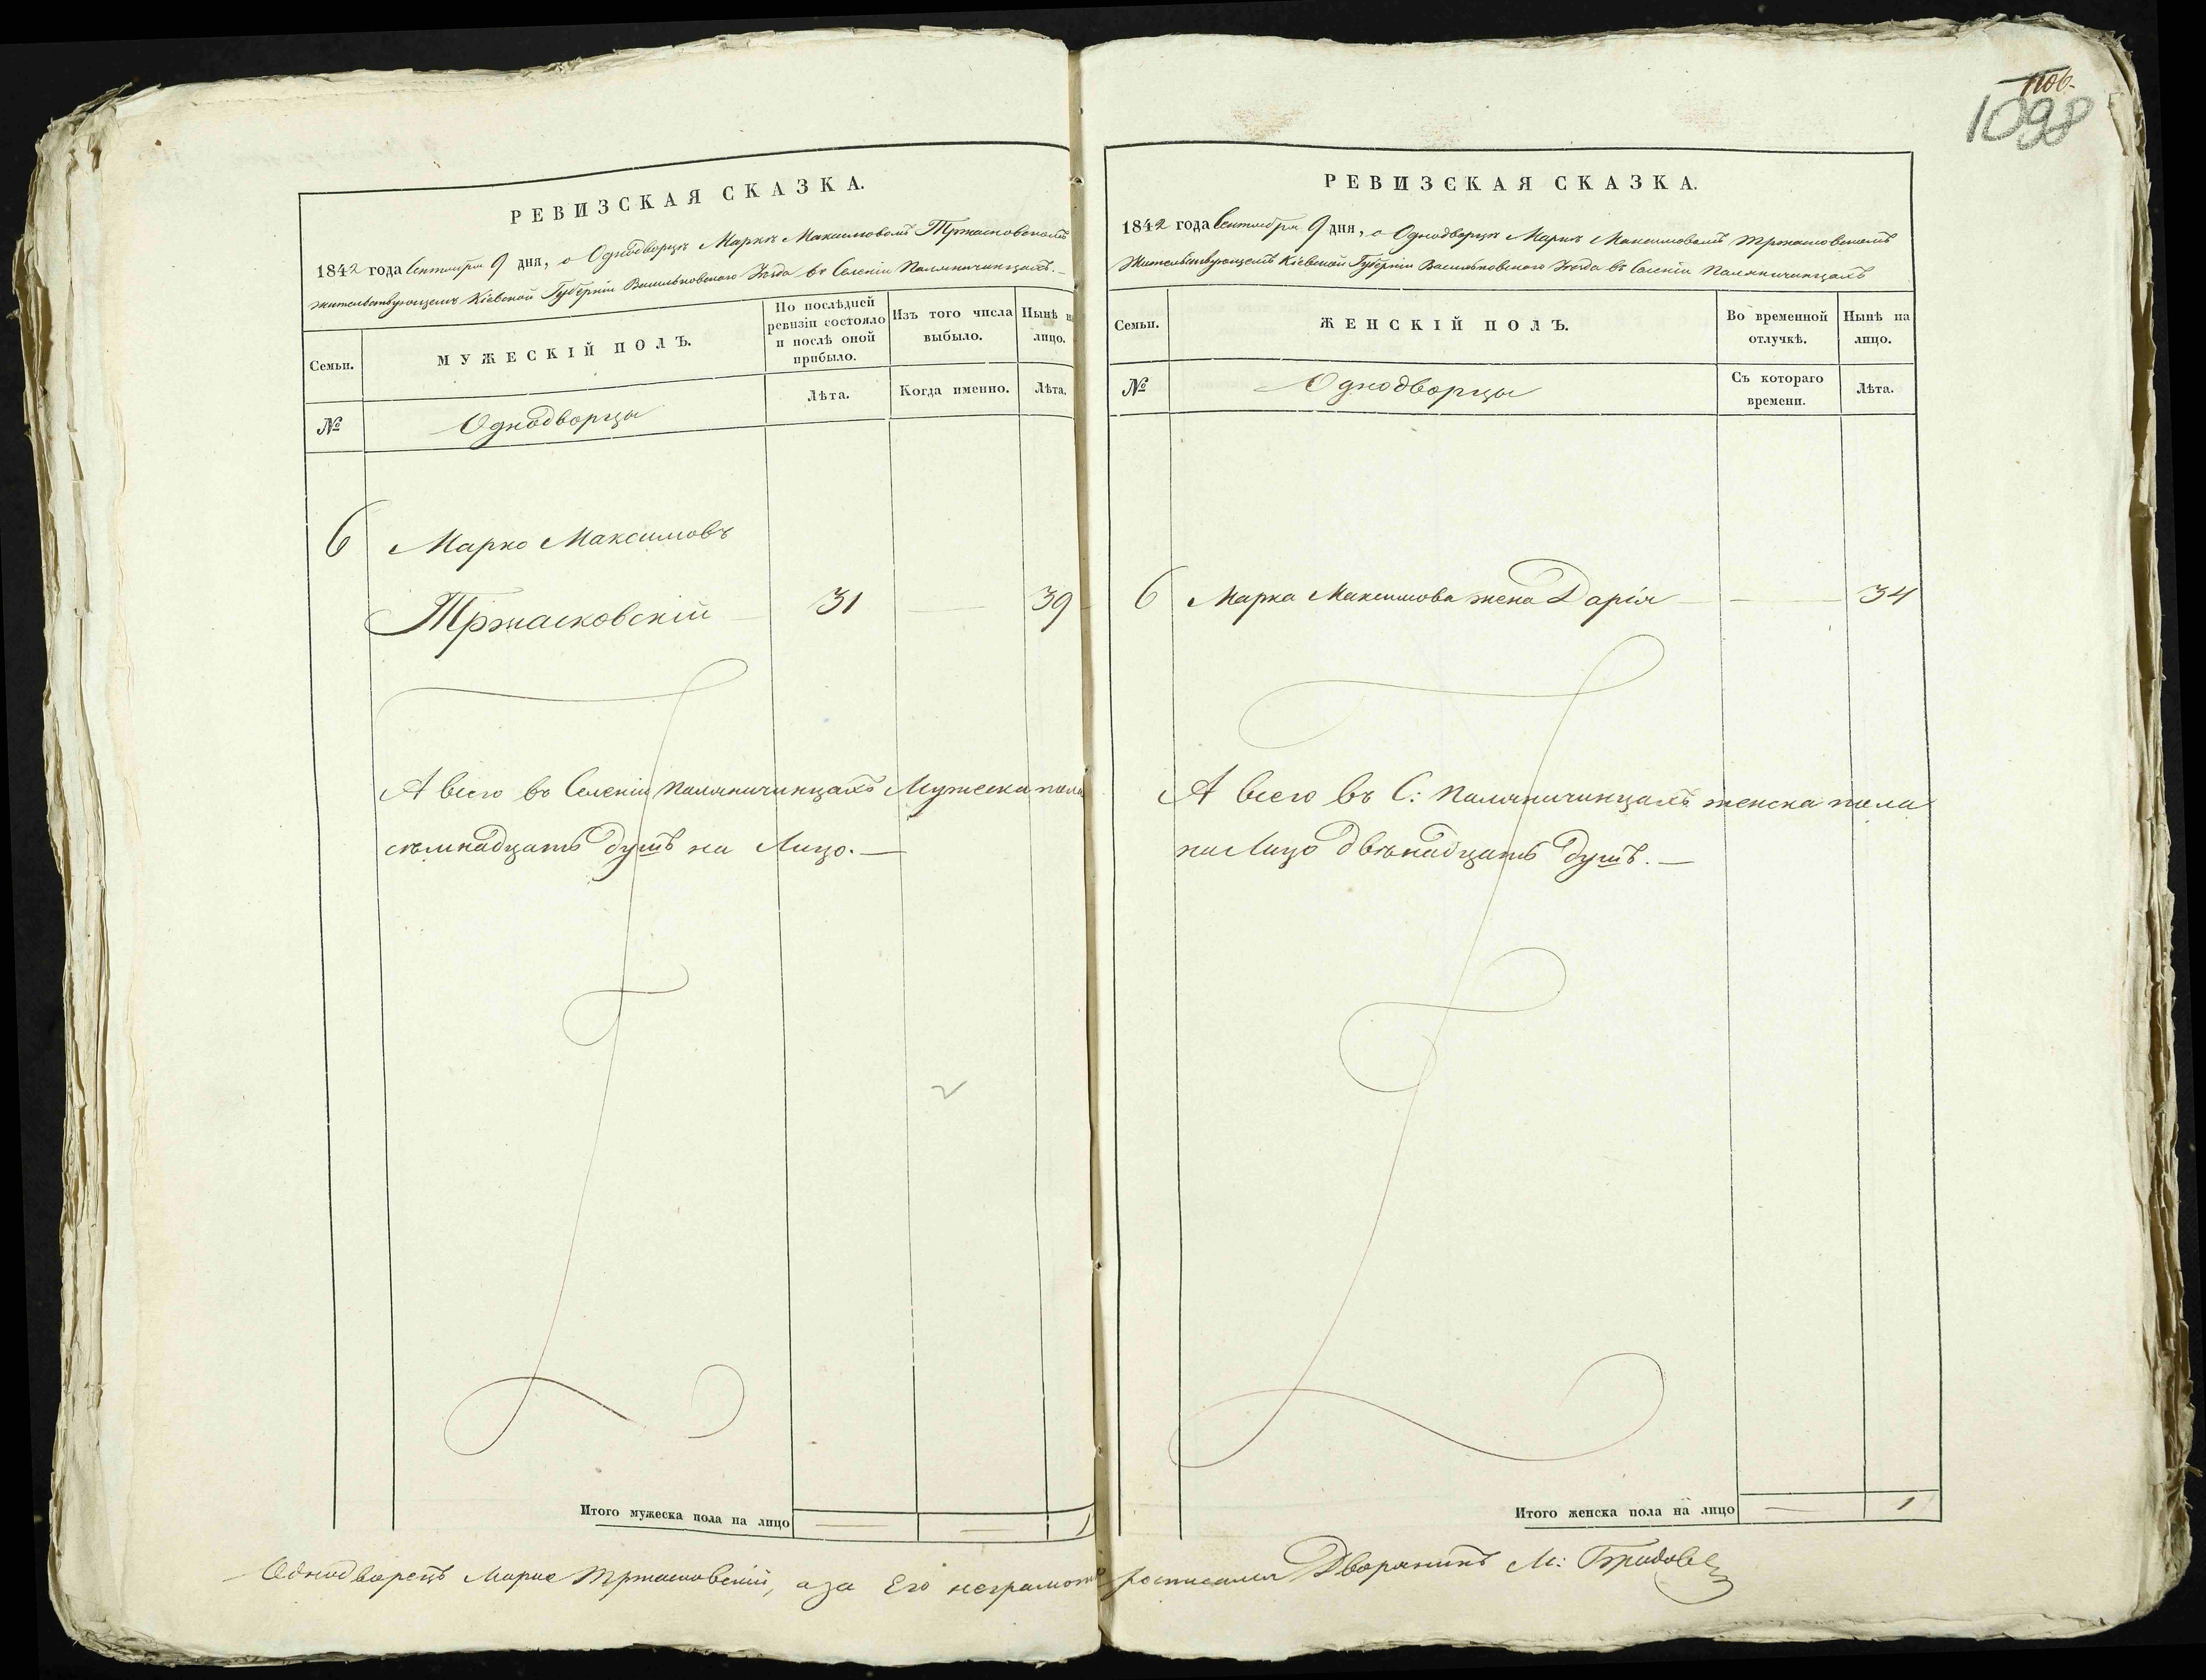 РЕВИЗСКАЯ СКАЗКА.
1842 года Сентября 9 дня, о Однодворцѣ Маркѣ Максимовомъ Тржасковскомъ
жительствующемъ Кіевской Губерніи Васильковскаго Уѣзда въ Селеніи Паляничинцахъ.
Семьи.
МУЖЕСКІЙ ПОЛЪ.
По послѣдней
ревизіи состояло
и послѣ оной
прибыло.
Изъ того числа
выбыло.
Нынѣ на
лицо.
№
Однодворцы
Лѣта.
Когда именно.
Лѣта.
6 Марко Максимовъ
Тржасковскій — 31 — 39
А всего въ Селеніи Паляничинцахъ Мужеска пола
семнадцать душъ на Лицо. —
Итого мужеска пола на лицо — — 1
1106.
1098
РЕВИЗСКАЯ СКАЗКА.
1842 года Сентября 9 дня, о Однодворцѣ Маркѣ Максимовомъ Тржасковскомъ
Жительствующемъ Кіевской Губерніи Васильковскаго Уѣзда въ Селеніи Паляничинцахъ
Семьи.
ЖЕНСКІЙ ПОЛЪ.
Во временной
отлучкѣ.
Нынѣ на
лицо.
№
Однодворцы
Съ котораго
времени.
Лѣта.
6 Марка Максимова жена Дарія — — 34
А всего въ С: Паляничинцахъ женска пола
на Лицо двѣнадцать душъ. —
Итого женска пола на лицо — 1
Однодворецъ Марко Тржасковскій, а за Его неграмотн росписался Дворянинъ М: